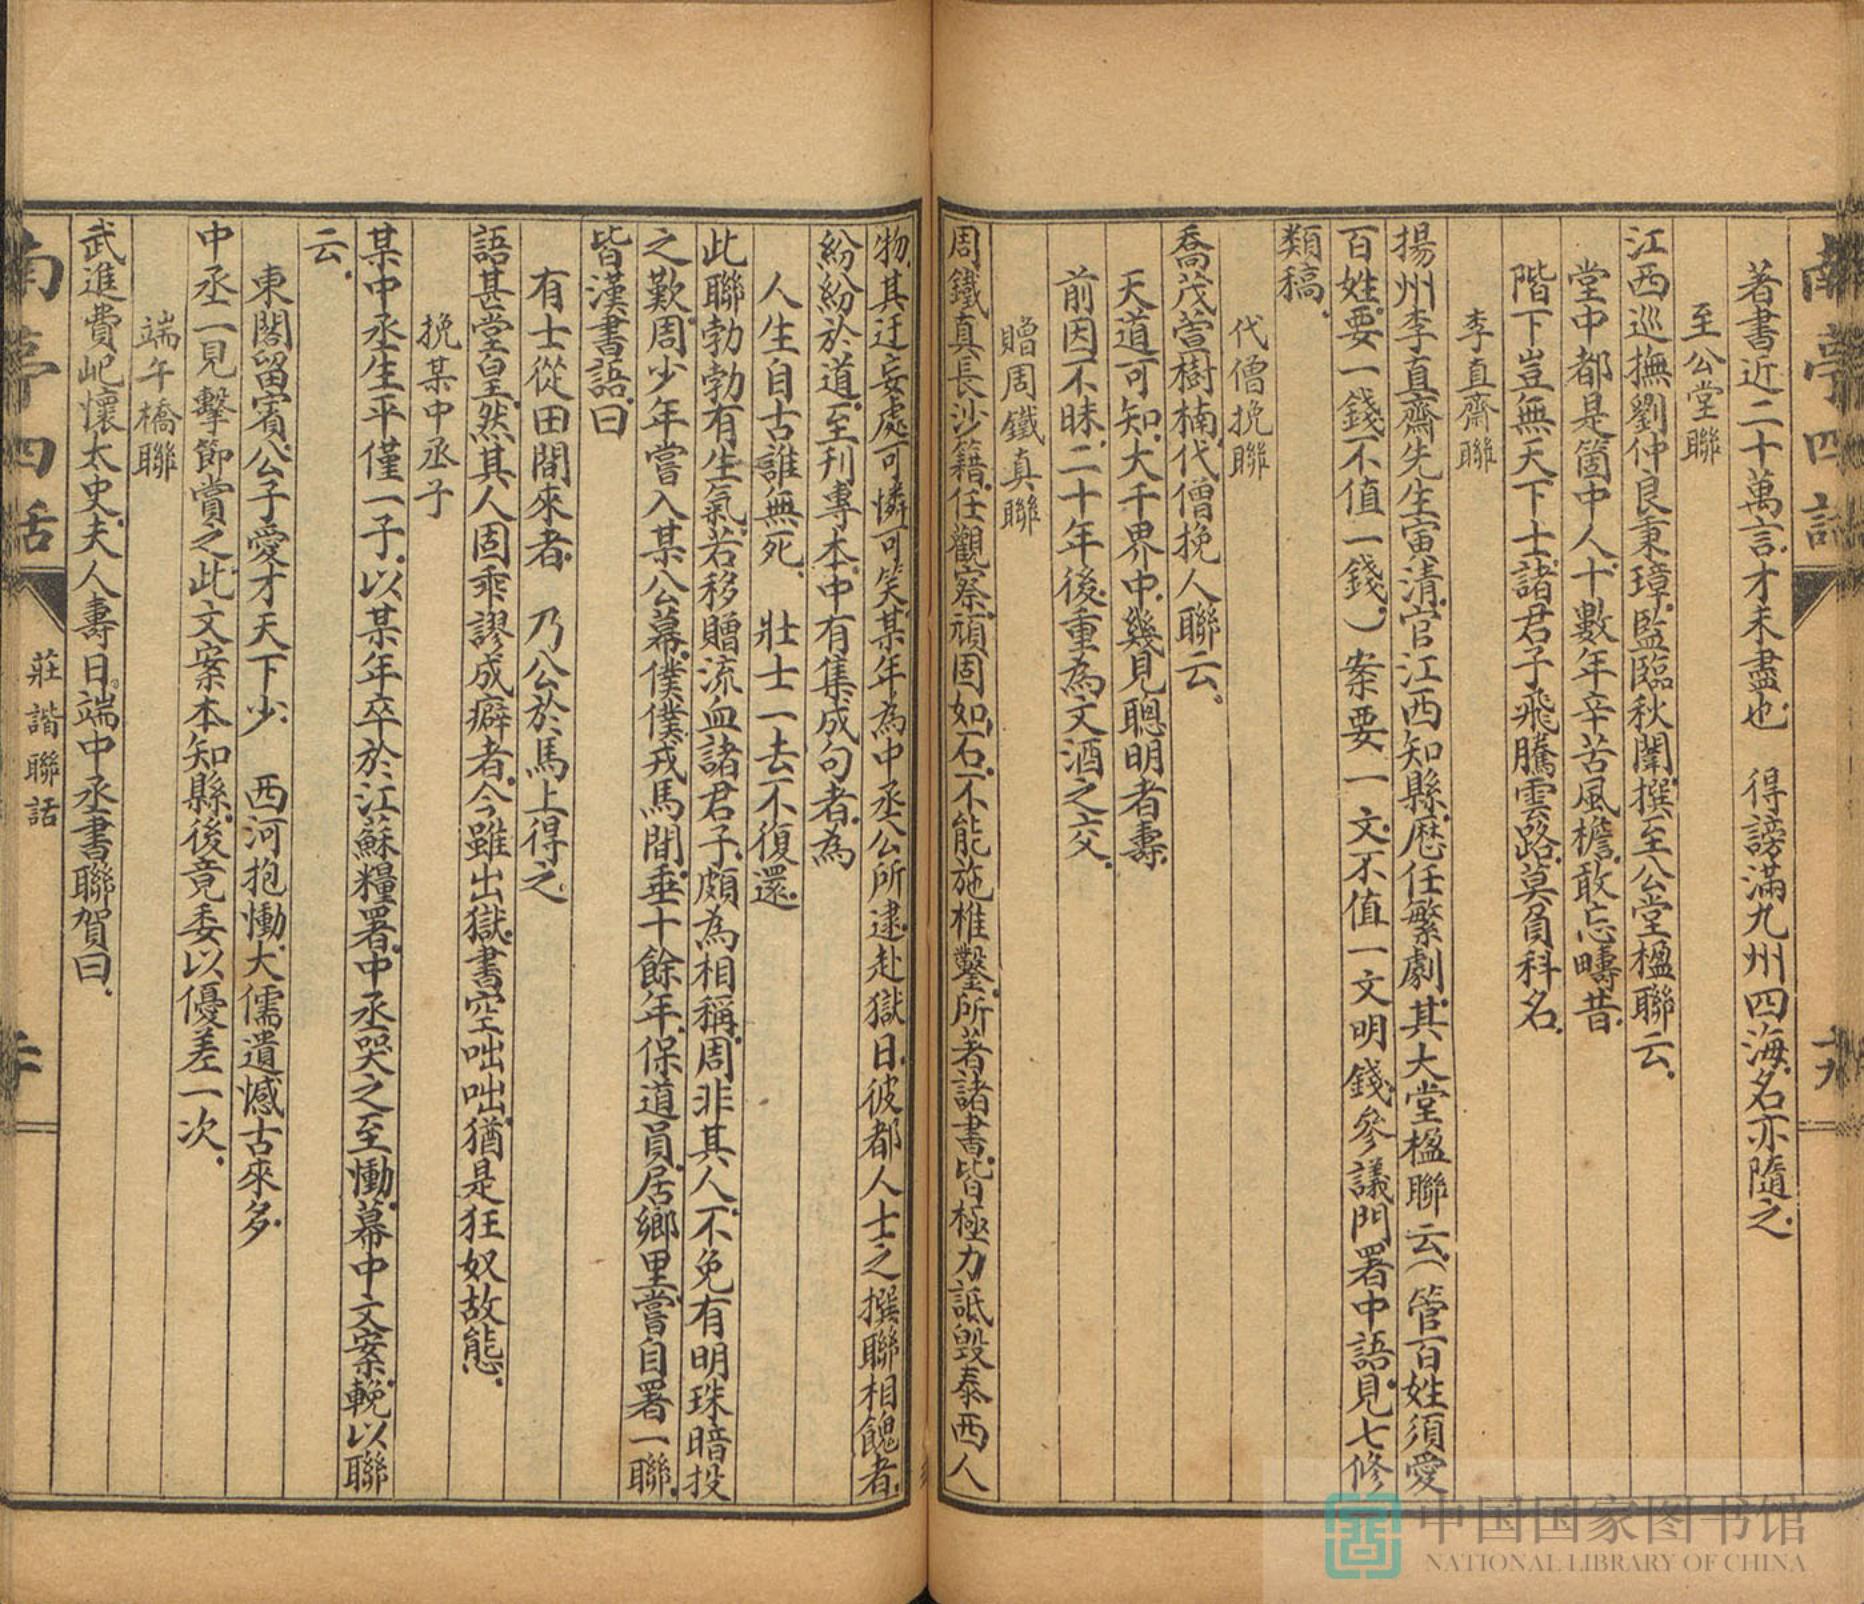 著書近二十萬言才未盡也　得謗滿九州四海名亦隨之
至公堂聯
江西巡撫劉仲良秉璋監臨秋闈撰至公堂楹聯云
堂中都是箇中人十數年辛苦風檐敢忘疇昔
階下豈無天下士諸君子飛騰雲路莫負科名
李直齋聯
揚州李直齋先生寅清官江西知縣歷任繁劇其大堂楹聯云（管百姓須愛
百姓要一錢不值一錢）案要一文不值一文明錢參議門署中語見七修
類稿
代僧挽聯
喬茂萱樹楠代僧挽人聯云
天道可知大千界中幾見聰明者壽
前因不昧二十年後重為文酒之交
贈周鐵真聯
周鐵真長沙籍任觀察頑固如石不能施椎鑿所著諸書皆極力詆毀泰西人
物其迂妄處可憐可笑某年為中丞公所逮赴獄日彼都人士之撰聯相餽者
紛紛於道至刊專本中有集成句者為
人生自古誰無死　壯士一去不復還
此聯勃勃有生氣若移贈流血諸君子頗為相稱周非其人不免有明珠暗投
之歎周少年嘗入某公幕僕僕戎馬間垂十餘年保道員居鄉里嘗自署一聯
皆漢書語曰
有士從田間來者　乃公於馬上得之
語甚堂皇然其人固乖謬成癖者今雖出獄書空咄咄猶是狂奴故態
挽某中丞子
某中丞生平僅一子以某年卒於江蘇糧署中丞哭之至慟幕中文案輓以聯
云
東閣留賓公子愛才天下少　西河抱慟大儒遺憾古來多
中丞一見擊節賞之此文案本知縣後竟委以優差一次
端午橋聯
武進費屺懷太史夫人壽日端中丞書聯賀曰
南亭四話
莊諧聯話
南亭四話